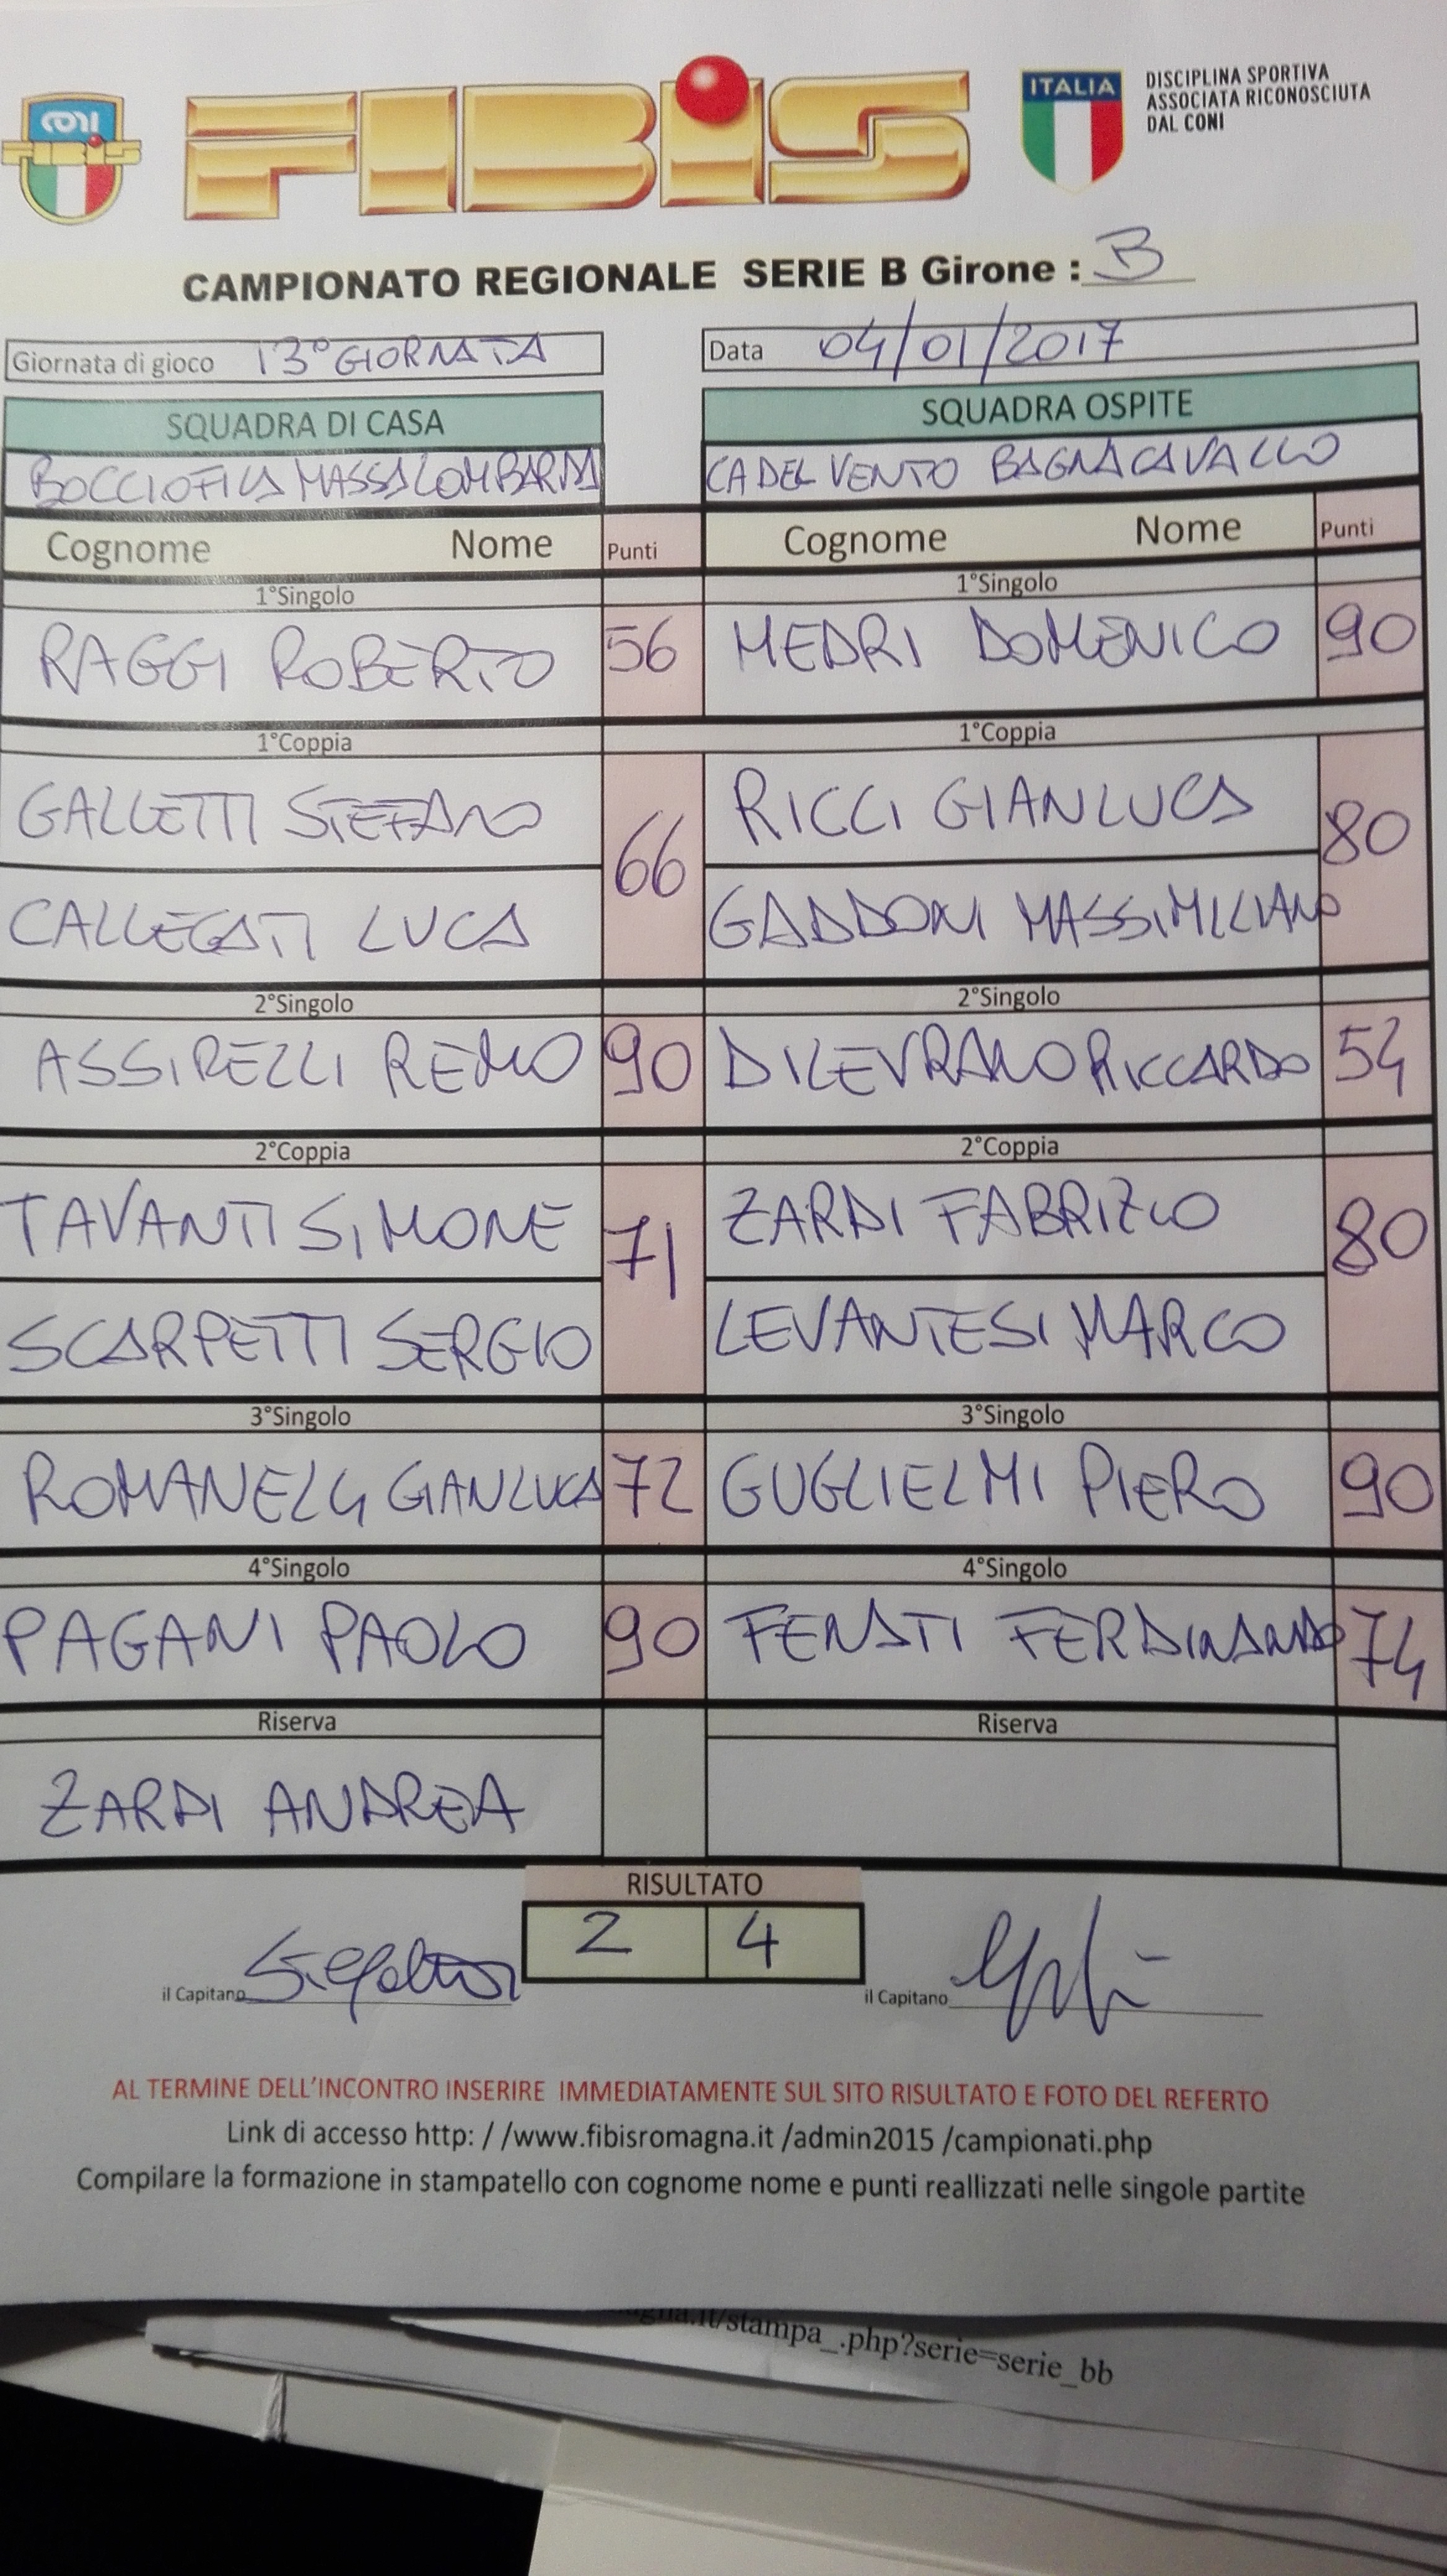 CONI
FIBIS
FIBIS
ITALIA
DISCIPLINA SPORTIVA
ASSOCIATA RICONOSCIUTA
DAL CONI
CAMPIONATO REGIONALE SERIE B Girone : B
Giornata di gioco 13° GIORNATA Data 04/01/2017
SQUADRA DI CASA SQUADRA OSPITE
BOCCIOFILA MASSALOMBARDA CA DEL VENTO BAGNACAVALLO
Cognome Nome Punti Cognome Nome Punti
1°Singolo 1°Singolo
RAGGI ROBERTO 56 MEDRI DOMENICO 90
1°Coppia 1°Coppia
GALLETTI STEFANO 66 RICCI GIANLUCA 80
CALLEGATI LUCA GADDONI MASSIMILIANO
2°Singolo 2°Singolo
ASSIRELLI REMO 90 DILEVRANO RICCARDO 54
2°Coppia 2°Coppia
TAVANTI SIMONE 71 ZARDI FABRIZIO 80
SCARPETTI SERGIO LEVANTESI MARCO
3°Singolo 3°Singolo
ROMANELLI GIANLUCA 72 GUGLIELMI PIERO 90
4°Singolo 4°Singolo
PAGANI PAOLO 90 FENATI FERDINANDO 74
Riserva Riserva
ZARDI ANDREA
RISULTATO
2 4
il Capitano il Capitano
AL TERMINE DELL'INCONTRO INSERIRE IMMEDIATAMENTE SUL SITO RISULTATO E FOTO DEL REFERTO
Link di accesso http: / /www.fibisromagna.it /admin2015 /campionati.php
Compilare la formazione in stampatello con cognome nome e punti reallizzati nelle singole partite
gna.it/stampa_.php?serie=serie_bb